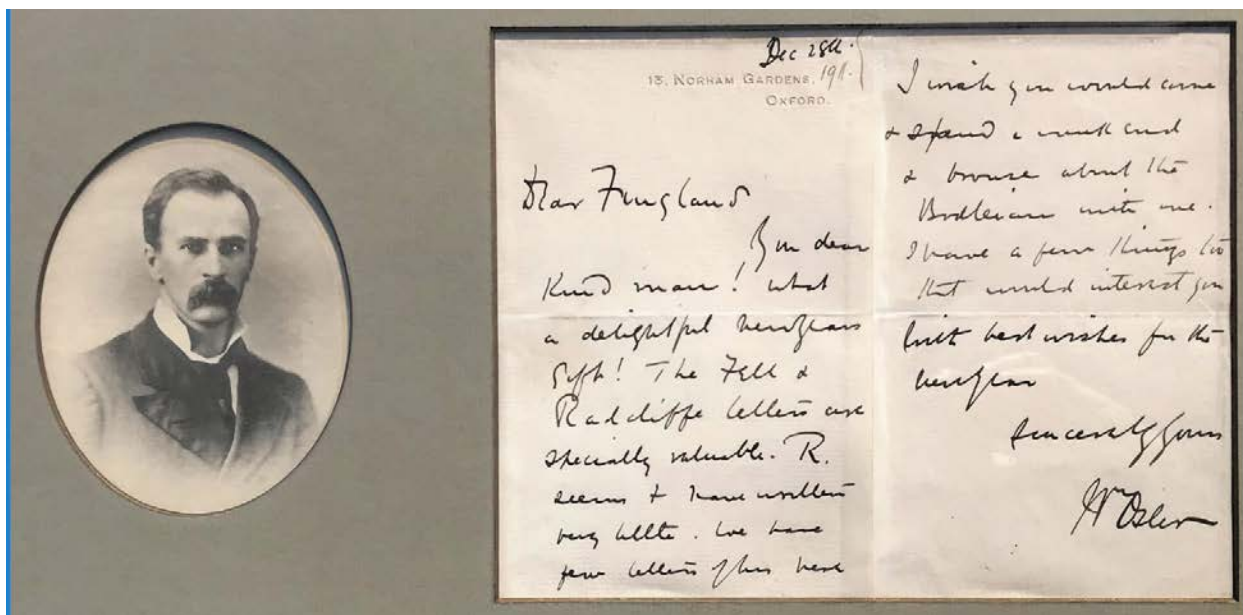 Dec 28th.
13, NORHAM GARDENS, 1911.
OXFORD.
Dear
You dear
Kind man! What
a delightful New Years
Gift! The Fell &
Radcliffe letters are
specially valuable. R.
seems to have written
very little. We have
few letters of his here
I wish you would come
& spend a week end
& browse about the
Bodleian with me.
I have a few things too
that would interest you
With best wishes for the
New Year
Sincerely yours
Wm Osler